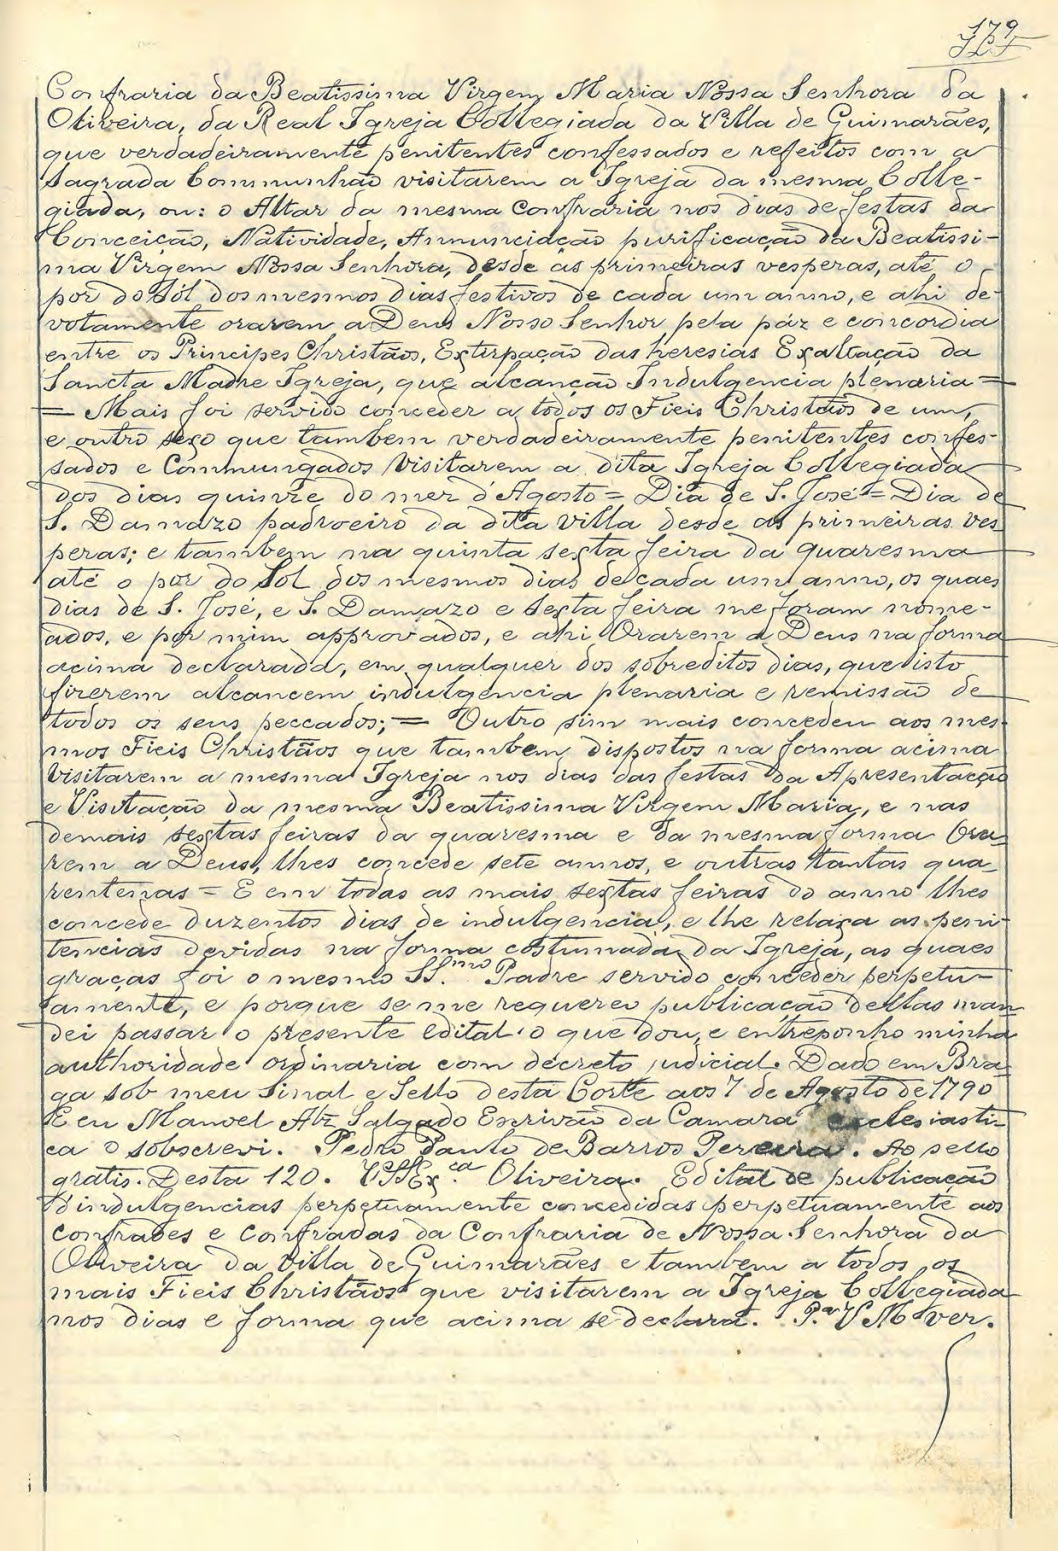 179
Confraria da Beatissima Virgem Maria Nossa Senhora da
Oliveira, da Real Igreja Collegiada da Villa de Guimarães,
que verdadeiramente penitentes confessados e refeitos com a
Sagrada Communhão visitarem a Igreja da mesma Colle-
giada, ou: o Altar da mesma Confraria nos dias de festas da
Conceição, Natividade, Annunciação purificação da Beatissi-
ma Virgem Nossa Senhora, desde as primeiras vesperas, até o
por do Sól dos mesmos dias festivos de cada um anno, e ahi de-
votamente orarem a Deus Nosso Senhor pela páz e concordia
entre os Principes Christãos, Extirpação das heresias Exaltação da
Sancta Madre Igreja, que alcanção Indulgencia plenaria =
= Mais foi servido conceder a todos os Fieis Christãos de um,
e outro sexo que tambem verdadeiramente penitentes confes-
sados e Commungados Visitarem a dita Igreja Collegiada
dos dias quinze do mez d'Agosto = Dia de S. José = Dia de
S. Damazo padroeiro da dita villa desde as primeiras ves
peras; e tambem na quinta sexta feira da quaresma
até o por do Sol dos mesmos dias de cada um anno, os quaes
dias de S. José, e S. Damazo e sexta feira me foram nome-
ados, e por mim approvados, e ahi Orarem a Deus na forma
acima declarada, em qualquer dos sobreditos dias, que isto
fizerem alcancem indulgencia plenaria e remissão de
todos os seus peccados; = Outro sim mais concedeu aos mes-
mos Fieis Christãos que tambem dispostos na forma acima
Visitarem a mesma Igreja nos dias das festas da Apresentação
e Visitação da mesma Beatissima Virgem Maria, e nas
demais sextas feiras da quaresma e da mesma forma Ora-
rem a Deus, lhes concede sete annos, e outras tantas qua-
rentenas = E em todas as mais sextas feiras do anno lhes
concede duzentos dias de indulgencia, e lhe relaxa as peni-
tencias devidas na forma costumada da Igreja, as quaes
graças foi o mesmo SS.mo Padre servido conceder perpetu-
amente, e porque se me requereo publicação dellas man-
dei passar o presente Edital o que dou, e entreponho minha
authoridade ordinaria com decreto judicial. Dado em Bra-
ga sob meu Sinal e Sello desta Corte aos 7 de Agosto de 1790
E eu Manoel Alz Salgado Escrivão da Camara ecclesiasti-
ca o sobscrevi. Pedro Paulo de Barros Pereira. Ao sello
gratis. Desta 120. Oliveira. Edital de publicação
d'indulgencias perpetuamente concedidas perpetuamente aos
confrades e confradas da Confraria de Nossa Senhora da
Oliveira da Villa de Guimarães e tambem a todos os
mais Fieis Christãos que visitarem a Igreja Collegiada
nos dias e forma que acima se declara. P.a V M ver.